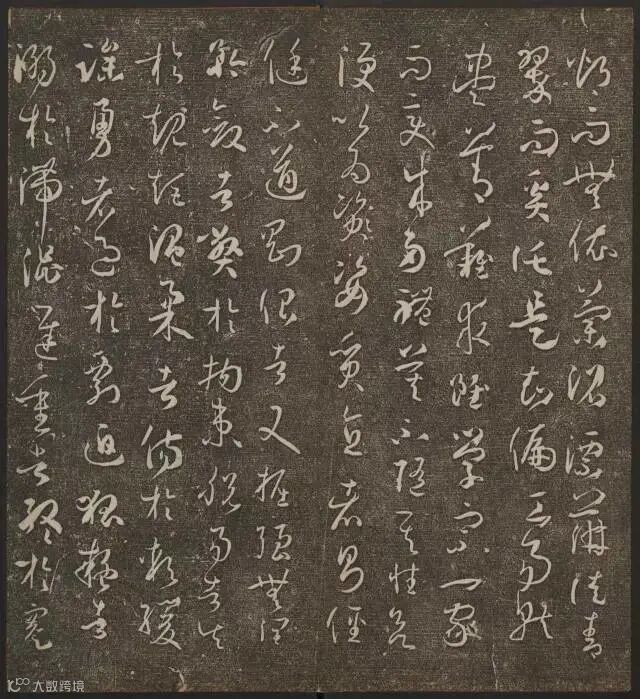 灼而無依蘭沼漂蓱徒青
翠而奚託是知偏工易就
盡善難求雖學宗一家
而變成多體莫不隨其性欲
便以為資姿質直者則俓
侹不遒剛佷者又掘強無潤
矜斂者弊於拘束脫易者失
於規矩溫柔者傷於軟緩
躁勇者過於剽迫狐疑者
溺於滯澁遲重者終於蹇
大数跨境